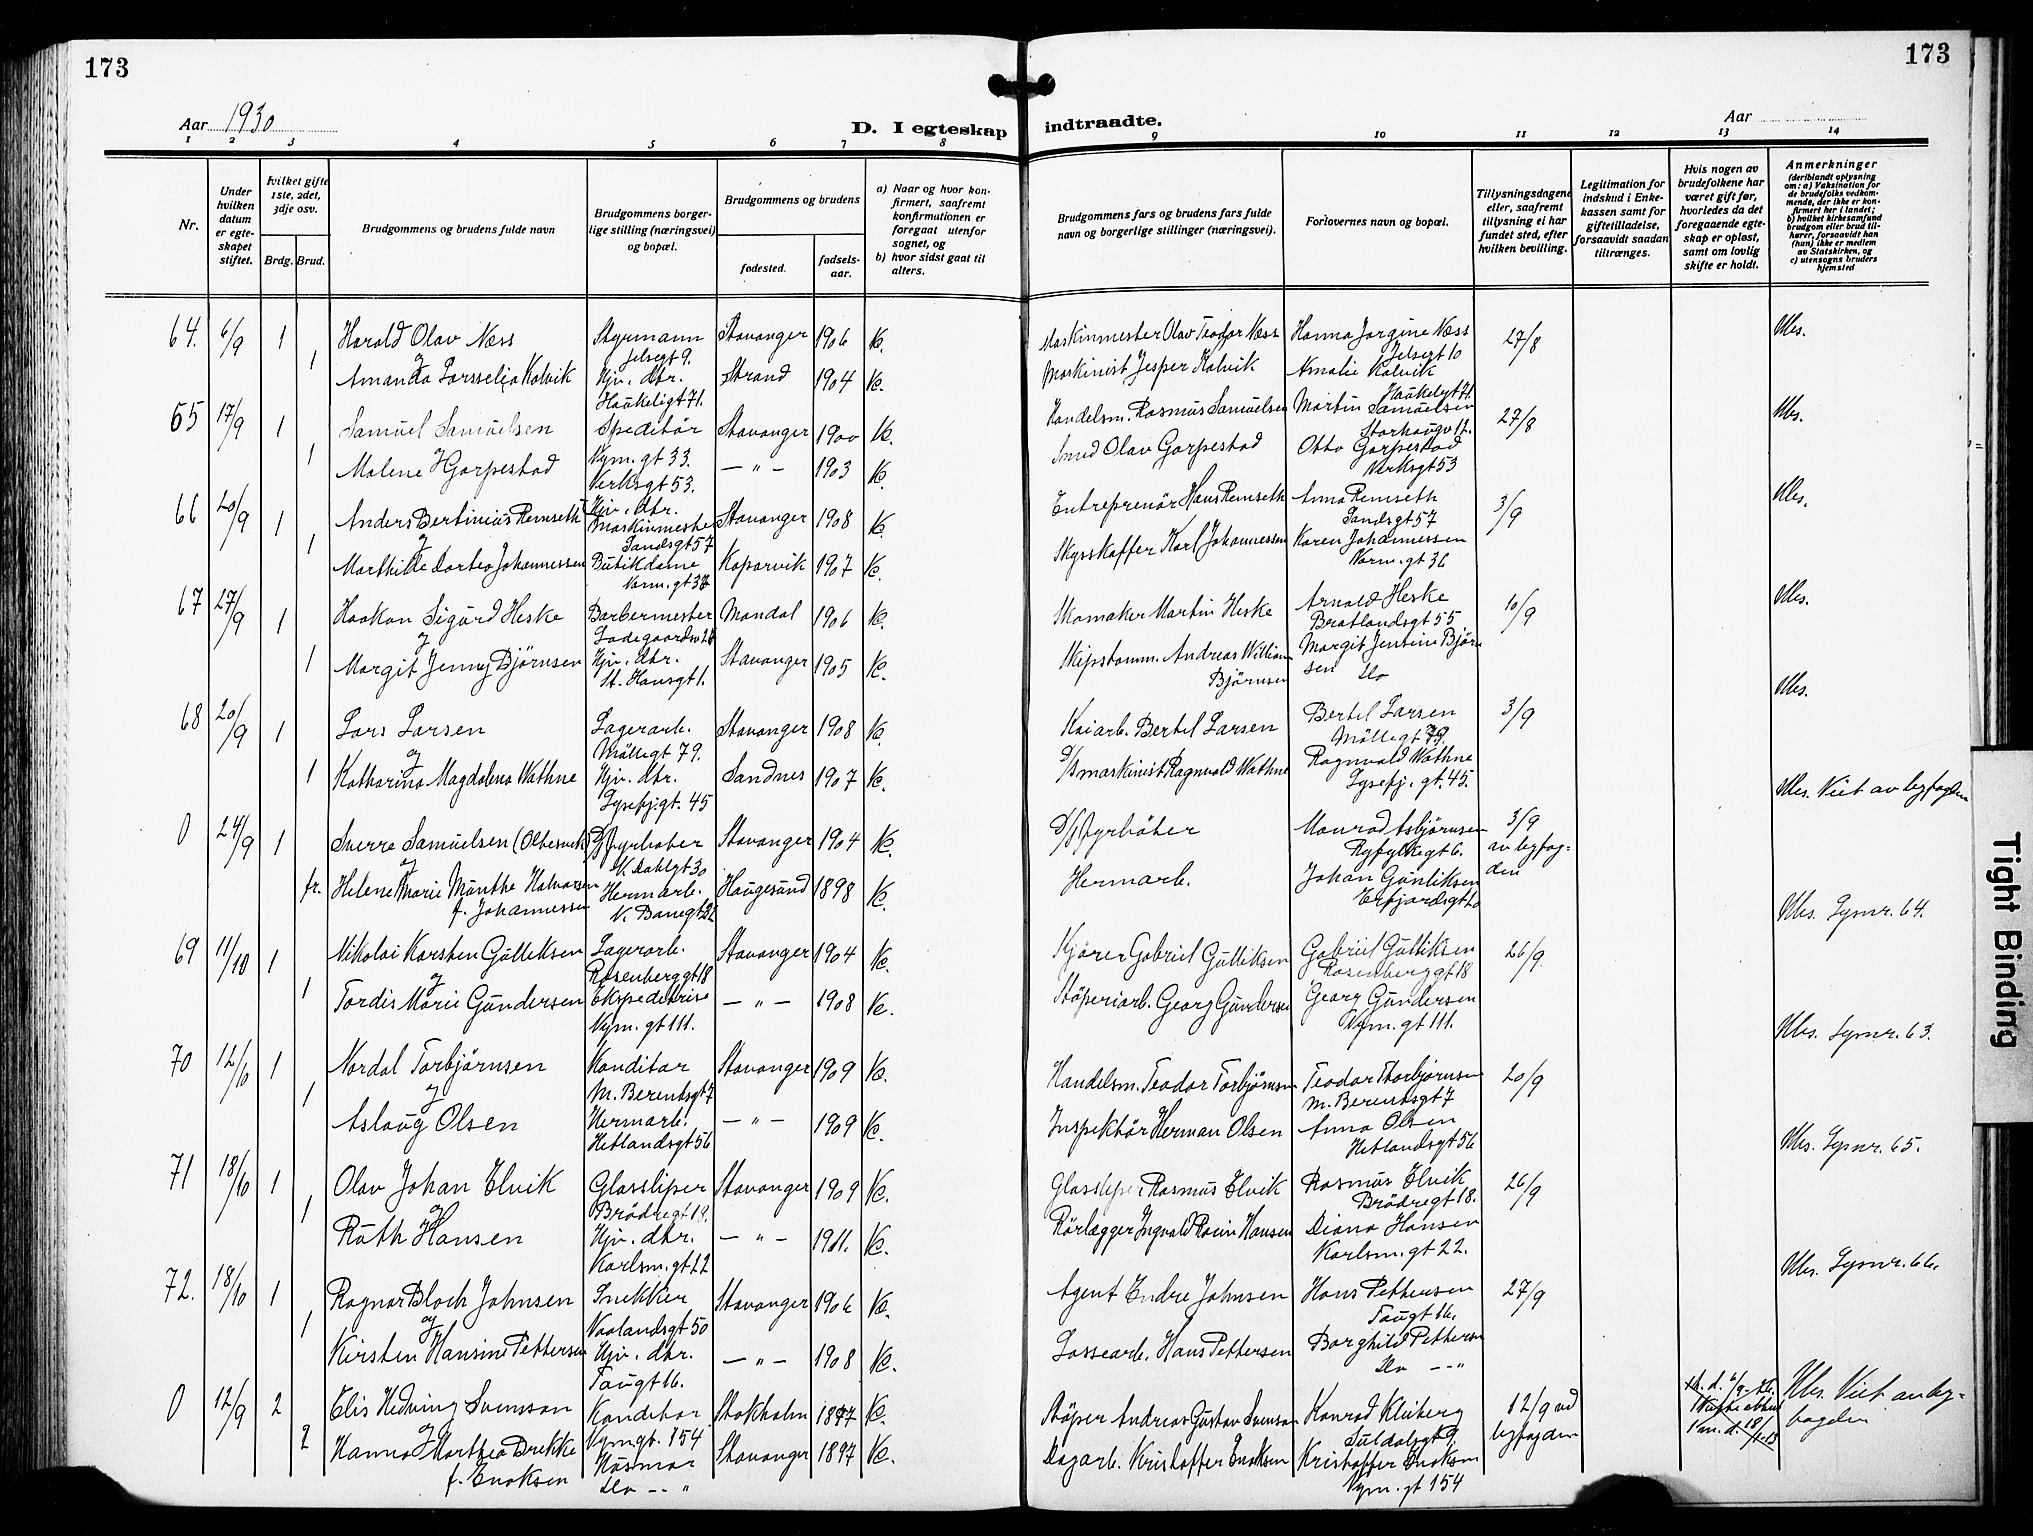 173
173
Aar 1930
D. I egteskap indtraadte.
Aar
1 2 3 4 5 6 7 8 9 10 11 12 13 14
Nr.
Under hvilken datum er egteskapet stiftet.
hvilket gifte 1ste, 2det, 3dje osv.
Brdg. Brud.
Brudgommens og brudens fulde navn
Brudgommens borgerlige stilling (næringsvei) og bopæl.
Brudgommens og brudens
fødested.
fødselsaar.
a) Naar og hvor konfirmert, saafremt konfirmutionen er foregaat utenfor sognet, og
b) hvor sidst gaat til alters.
Brudgommens fars og brudens fars fulde navn og borgerlige stillinger (næringsvei).
Forlovernes navn og bopæl.
Tillysningsdagene eller, saafremt tillysning ei har fundet sted, efter hvilken bevilling.
Legitimation for indskud i Enkekassen samt for giftetilladelse, forsaavidt saadan tiltrænges.
Hvis nogen av brudefolkene har været gift før, hvorledes da det foregaaende egteskap er opløst, samt om lovlig skifte er holdt.
Anmerkninger
(deriblandt oplysning om: a) Vaksination for de brudefolks vedkommende, der ikke er konfirmert her i landet; b) hvilket kirkesamfund brudgom eller brud tilhører, forsaavidt han (hun) ikke er medlem av Statskirken, og c) utensogns bruders hjemsted
64. 6/9 1 Harald Olav Næss Styrmann Jelsegt 9. Stavanger 1906 K. Maskinmester Olav Teodor Næss Hanna Jorgine Næss Jelsegt 10 27/8 Ubs.
og
1 Amanda Torsselia Kolvik Hjv. dtr. Haukeligt 71. Strand 1904 K. Maskinist Jesper Kolvik Amalie Kolvik Haukeligt 71.
65 17/9 1 Samuel Samuelsen Speditør Nym. gt 33. Stavanger 1900 K. Handelsm. Rasmus Samuelsen Martin Samuelsen Storhaugv 12. 27/8 Ubs.
og
1 Malene Gorpestad Verksgt 53. Hjv. dtr. — " — 1903 K. Smed Olav Gorpestad Otto Gorpestad Verksgt 53
66 20/9 1 Anders Bertinius Remseth Maskinmester Sandsgt 57 Stavanger 1908 K. Entreprenör Hans Remseth Anna Remseth Sandsgt 57 3/9 Ubs.
og
1 Marthilde Dortea Johannessen Butikdame Norm. gt 36 Koparvik 1907 K. Skysskaffer Karl Johannessen Karen Johannessen Norm. gt 36
67 27/9 1 Haakon Sigurd Heske Barbermester Ladegaardsv 26 Mandal 1906 K. Skomaker Martin Heske Arnold Heske Bratlandsgt 55 10/9 Ubs.
og
1 Margit Jenny Björnsen Hjv. dtr. St. Hansgt 1. Stavanger 1905 K. Skipstömm. Andreas William Björnsen Margit Jentine Björnsen do
68 20/9 1 Lars Larsen Lagerarb. Möllegt 79. Stavanger 1908 K. Kaiarb. Bertel Larsen Bertel Larsen Möllegt 79. 3/9 Ubs.
og
1 Katharina Magdalena Wathne Hjv. dtr. Lysefj. gt. 45 Sandnes 1907 K. D/S maskinist Ragnvald Wathne Ragnvald Wathne Lysefj. gt. 45.
0 24/9 1 Sverre Samuelsen D/S fyrböter V. Dahlgt 30 Stavanger 1904 K. D/S fyrböter Monrad Asbjörnsen Ryfylkegt 6. 3/9 av byfogden Ubs. Viet av byfogden
og
fr. Helene Marie Munthe Halvorsen f. Johannessen Hermarb. N. Banegt 26 Haugesund 1898 K. Hermarb. Johan Gunliksen Erfjordsgt 10
69 11/10 1 Nikolai Karsten Gulliksen Lagerarb. Rosenberggt 18 Stavanger 1904 K. Kjörer Gabriel Gulliksen Gabriel Gulliksen Rosenberggt 18 26/9. Ubs. Lysnr. 64.
og
1 Tordis Marie Gundersen Ekspeditrise Nym. gt 111. — " — 1908 K. Stöperiarb. Georg Gundersen Georg Gundersen Nym. gt 111.
70 12/10 1 Nordal Torbjörnsen Konditor M. Berentsgt 7 Stavanger 1909 K. Handelsm. Teodor Torbjörnsen Teodor Thorbjörnsen M. Berentsgt 7 20/9 Ubs. Lysnr. 63.
og
1 Aslaug Olsen Hermarb. Hetlandsgt 56 — " — 1909 K. Inspektör Herman Olsen Anna Olsen Hetlandsgt 56
71 18/10 1 Olav Johan Elvik Glassliper Brödregt 18. Stavanger 1909 K. Glassliper Rasmus Elvik Rasmus Elvik Brödregt 18. 26/9 Ubs. Lysnr. 65.
og
1 Ruth Hansen Hjv. dtr. Karlsm. gt 22 — " — 1911. K. Rörlægger Ingvald Hansen Diana Hansen Karlsm. gt 22.
72. 18/10 1 Ragnar Bloch Johnsen Snekker Vaalandsgt 50 Stavanger 1906 K. Agent Endre Johnsen Hans Pettersen Taugt 16. 27/9 Ubs. Lysnr. 66.
og
1 Kirsten Hansine Pettersen Hjv. dtr. Taugt 16. — " — 1908 K. Lossearb. Hans Pettersen Borghild Pettersen do — "
0 12/9 2 Elis Hedving Svensson Konditor Nymgt. 154 Stokholm 1897 K. Stöper Andreas Gustav Svenson Konrad Kleiberg Suldalsgt 9. 12/9 ved byfogden Ubs. Viet av byfogden
og
2 Hanna Marthea Drekke f. Enoksen Husmor do — " Stavanger 1897 K. Dagarb. Kristoffer Enoksen Kristoffer Enoksen Nym. gt 154
Tight Binding